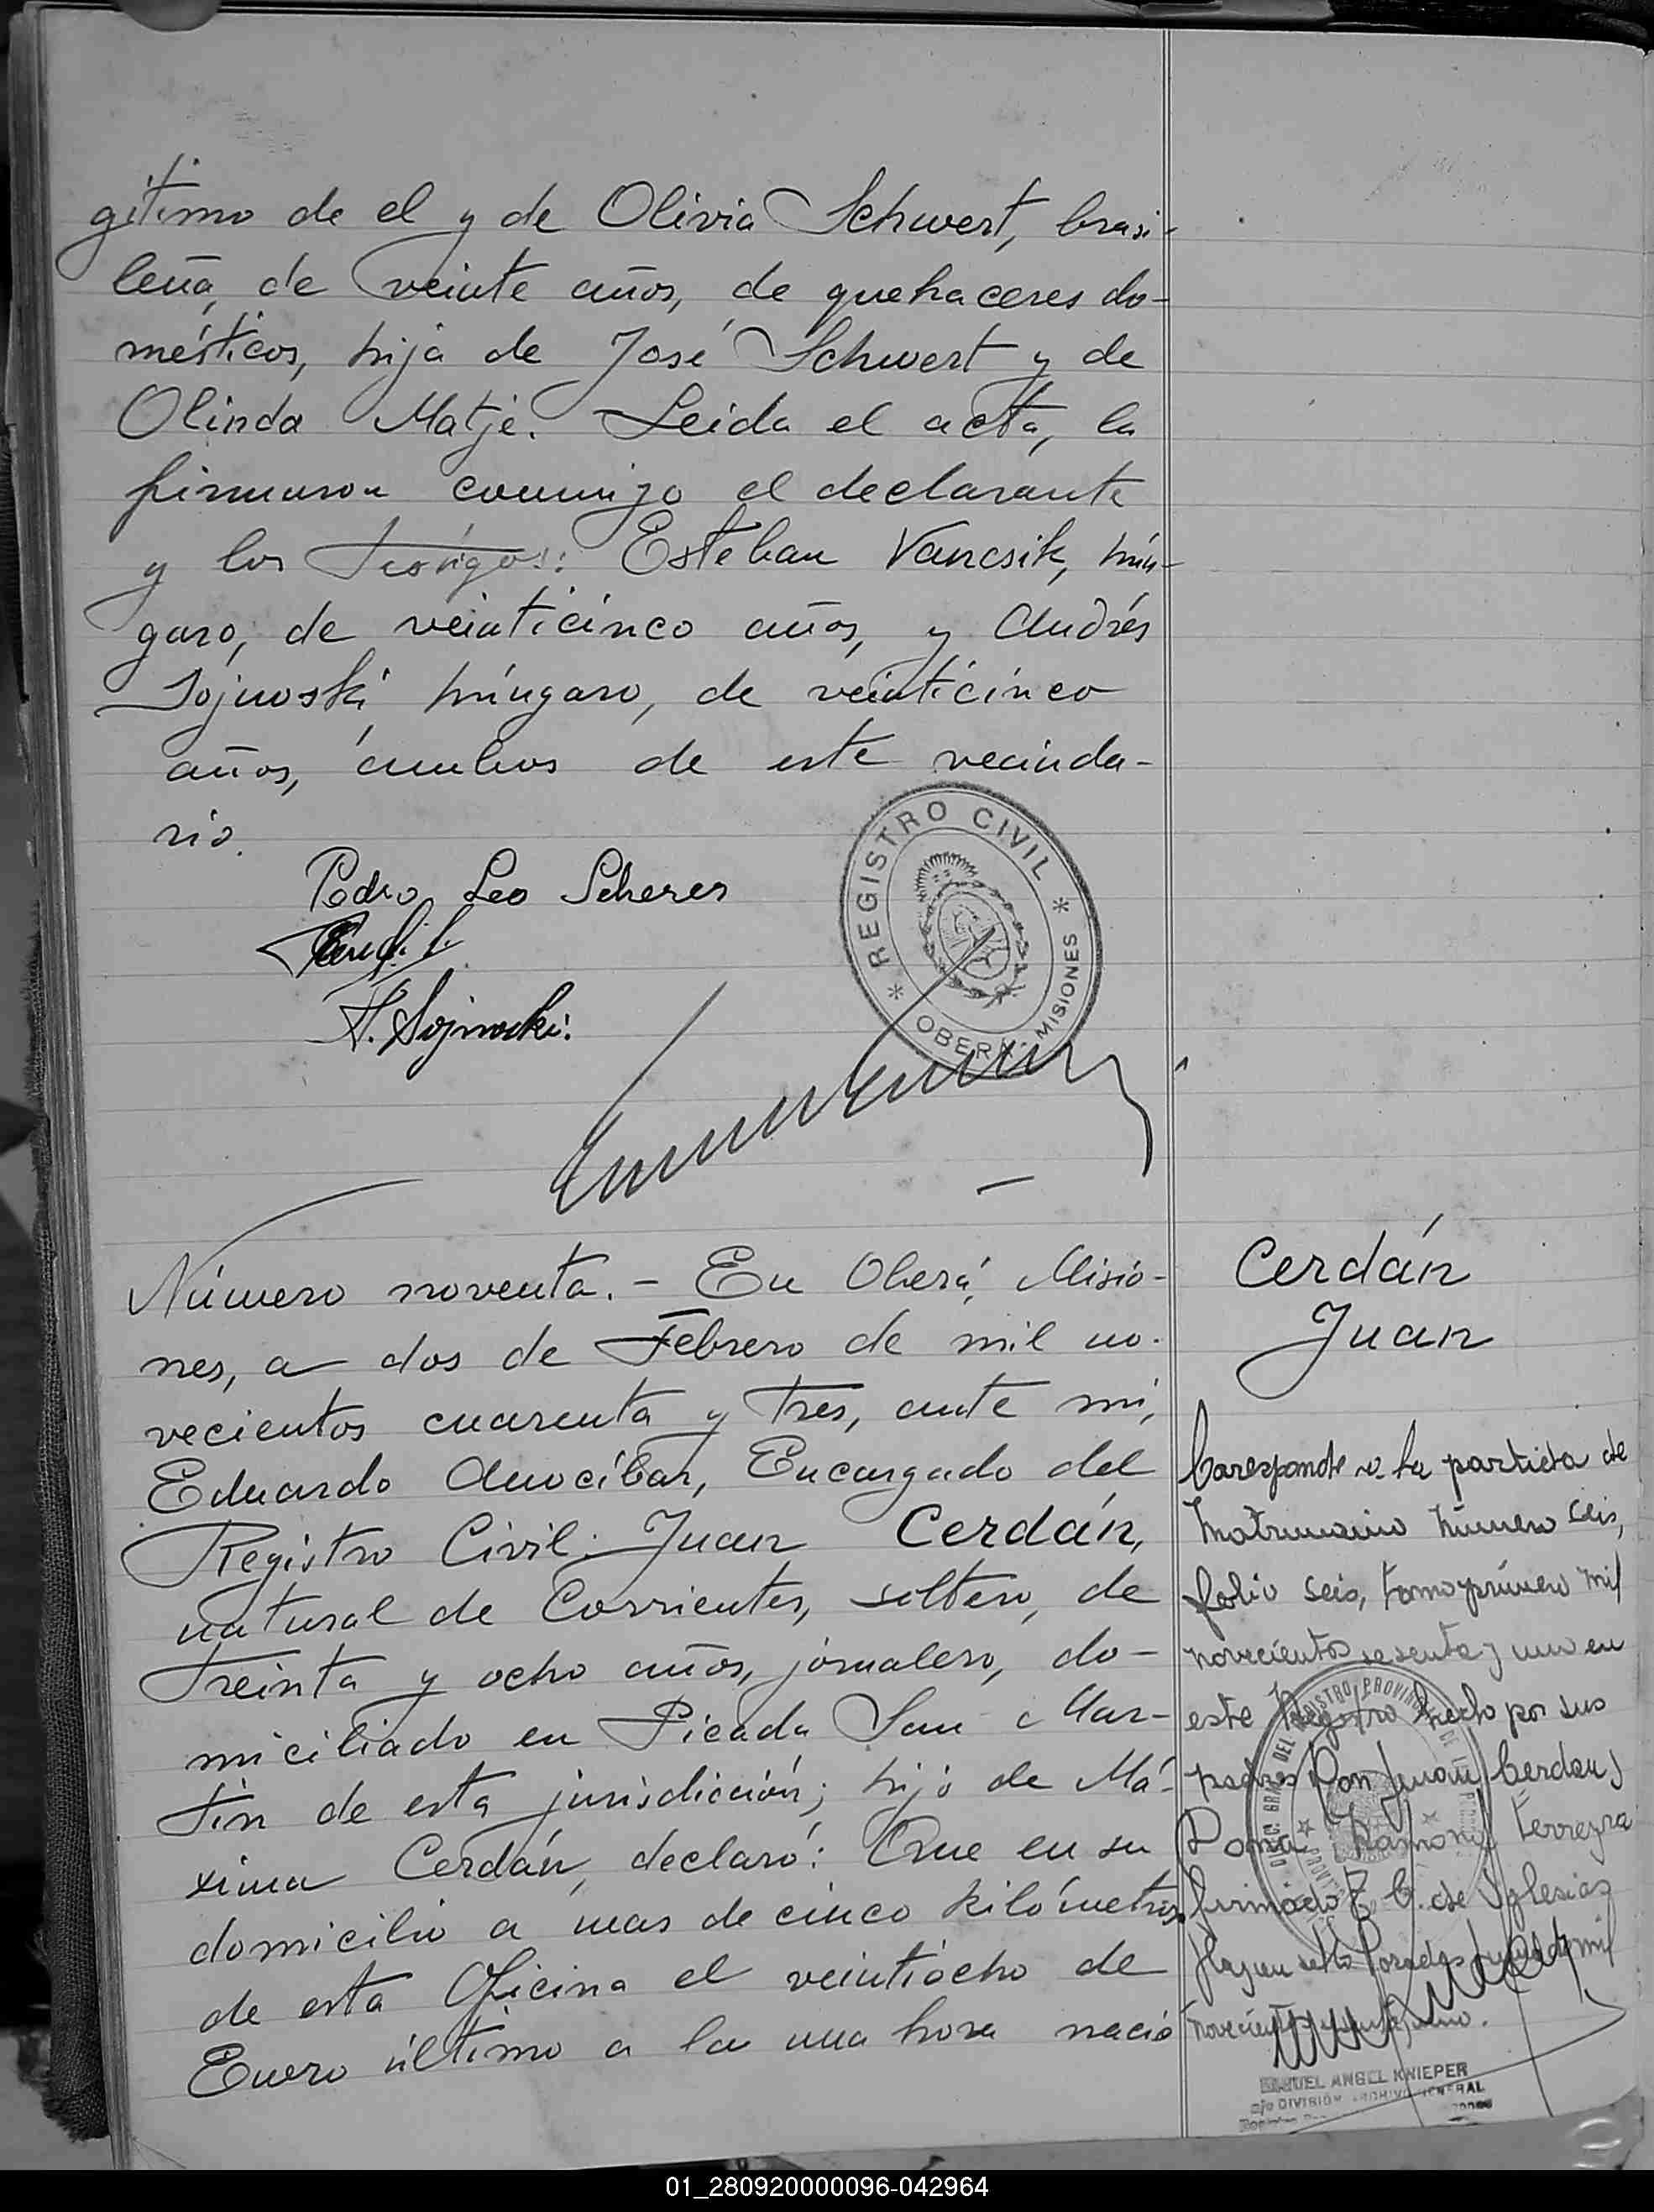 gítimo de el y de Olivia Schwert, brasi-
leña, de veinte años, de quehaceres do-
mésticos, hija de José Schwert y de
Olinda Matje. Leida el acta, la
firmaron conmigo el declarante
y los testigos: Esteban Vancsik, hún-
garo, de veinticinco años, y Andrés
Sojnoski, húngaro, de veinticinco
años, ambos de este vecinda-
rio.
Pedro Leo Scherer
REGISTRO CIVIL
* OBERÁ - MISIONES *
Número noventa. - En Oberá, Misio-
nes, a dos de Febrero de mil no-
vecientos cuarenta y tres, ante mí,
Eduardo Anocíbar, Encargado del
Registro Civil: Juan Cerdán,
natural de Corrientes, soltero, de
treinta y ocho años, jornalero, do-
miciliado en Picada San Mar-
tín de esta jurisdicción; hijo de Má-
xima Cerdán, declaró: Que en su
domicilio a mas de cinco kilómetros
de esta Oficina el veintiocho de
Enero último a la una hora nació
Cerdán
Juan
Coresponde a la partida de
Matrimonio número seis,
folio seis, tomo primero mil
novecientos sesenta y uno en
este Registro hecho por sus
padres Don Juan Cerdan y
Dona Ramona Ferreyra
firmado T. C. de Iglesias
Hay un sello Posadas
novecientos
ANGEL KNIEPER
DIVISIÓN ARCHIVO GENERAL
01_280920000096-042964